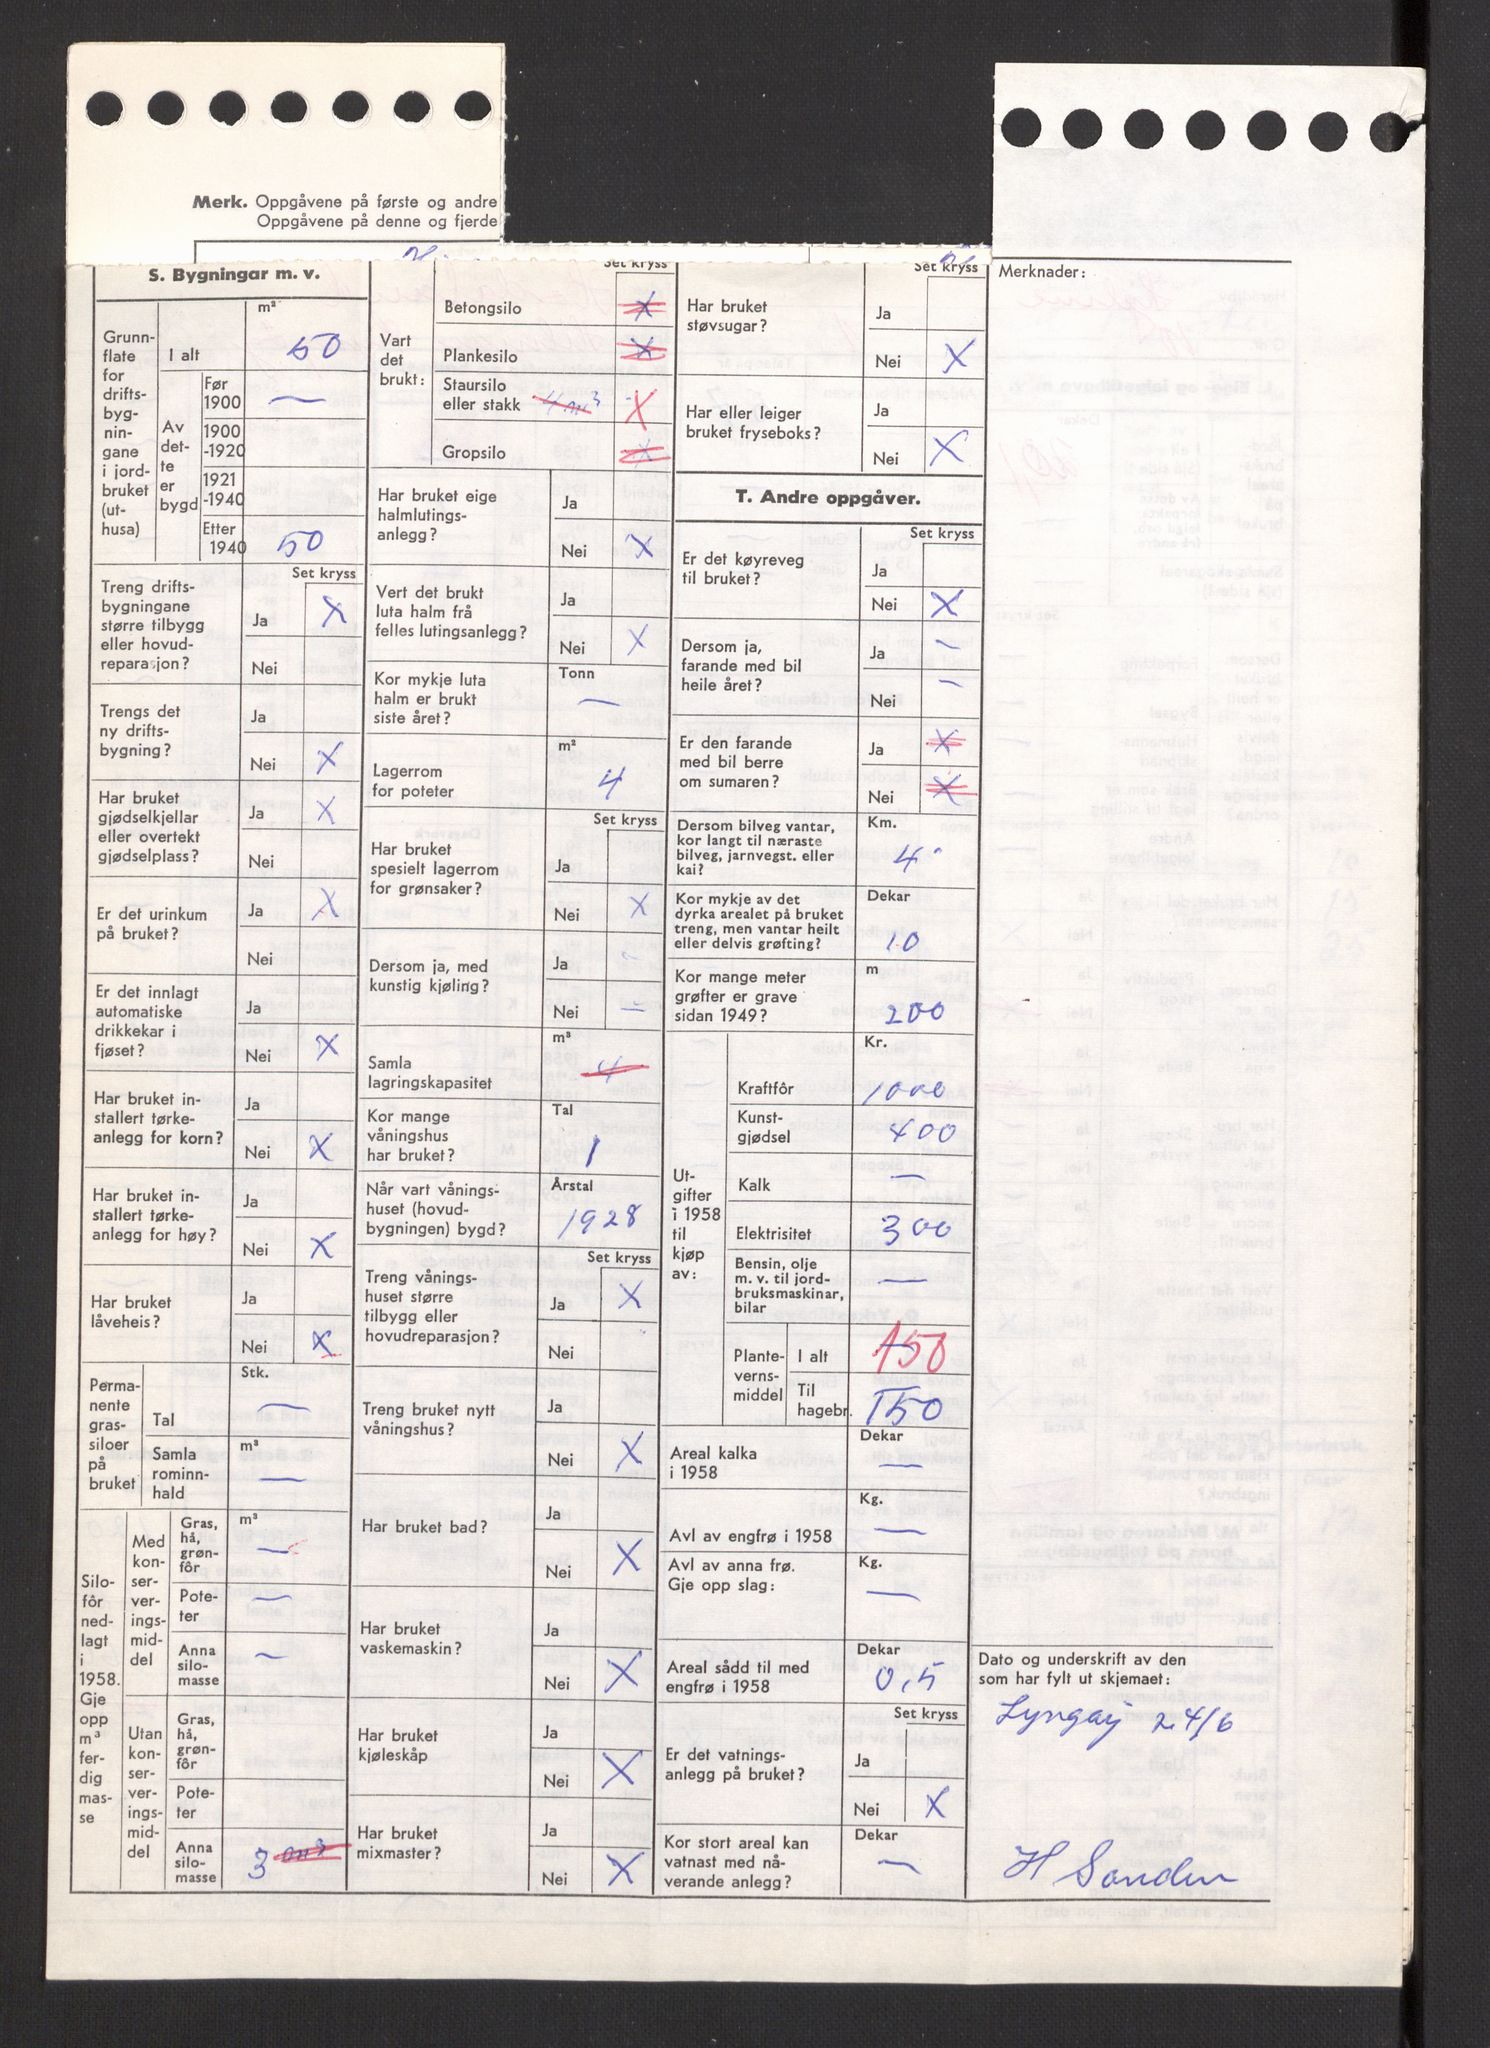 Merk. Oppgåvene på første og andre
Oppgåvene på denne og fjerde
S. Bygningar m. v.
Grunn-
flate
for
drifts-
byg-
nin-
gane
i jord-
bruket
(ut-
husa)
m²
I alt 50
Av
det-
te
er
bygd
Før
1900 —
1900
-1920
1921
-1940
Etter
1940 50
Set kryss
Treng drifts-
bygningane
større tilbygg
eller hovud-
reparasjon?
Ja X
Nei
Trengs det
ny drifts-
bygning?
Ja
Nei X
Har bruket
gjødselkjellar
eller overtekt
gjødselplass?
Ja X
Nei
Er det urinkum
på bruket?
Ja X
Nei
Er det innlagt
automatiske
drikkekar i
fjøset?
Ja
Nei X
Har bruket in-
stallert tørke-
anlegg for korn?
Ja
Nei X
Har bruket in-
stallert tørke-
anlegg for høy?
Ja
Nei X
Har bruket
låveheis?
Ja
Nei X
Perma-
nente
gras-
siloer
på
bruket
Stk.
Tal —
m³
Samla
rominn-
hald —
Silo-
fôr
ned-
lagt
i
1958.
Gje
opp
m³
fer-
dig
mas-
se
Med
kon-
ser-
ver-
ings-
mid-
del
m³
Gras,
hå,
grøn-
fôr —
Pote-
ter —
Anna
silo-
masse —
Utan
kon-
ser-
ver-
ings-
mid-
del
Gras,
hå,
grøn-
fôr
Pote-
ter
Anna
silo-
masse 3 m³
Set kryss
Vart
det
brukt:
Betongsilo X
Plankesilo X
Staursilo
eller stakk 4 m³ X
Gropsilo X
Har bruket eige
halmlutings-
anlegg?
Ja
Nei X
Vert det brukt
luta halm frå
felles lutingsanlegg?
Ja
Nei X
Kor mykje luta
halm er brukt
siste året?
Tonn
—
Lagerrom
for poteter
m²
4
Set kryss
Har bruket
spesielt lagerrom
for grønsaker?
Ja
Nei X
Dersom ja, med
kunstig kjøling?
Ja —
Nei —
Samla
lagringskapasitet
m³
4
Kor mange
våningshus
har bruket?
Tal
1
Når vart vånings-
huset (hovud-
bygningen) bygd?
Årstal
1928
Set kryss
Treng vånings-
huset større
tilbygg eller
hovudreparasjon?
Ja X
Nei
Treng bruket nytt
våningshus?
Ja
Nei X
Har bruket bad?
Ja
Nei X
Har bruket
vaskemaskin?
Ja
Nei X
Har bruket
kjøleskåp
Ja
Nei X
Har bruket
mixmaster?
Ja
Nei X
Set kryss
Har bruket
støvsugar?
Ja
Nei X
Har eller leiger
bruket fryseboks?
Ja
Nei X
T. Andre oppgåver.
Set kryss
Er det køyreveg
til bruket?
Ja
Nei X
Dersom ja,
farande med bil
heile året?
Ja —
Nei —
Er den farande
med bil berre
om sumaren?
Ja X
Nei X
Dersom bilveg vantar,
kor langt til næraste
bilveg, jarnvegst. eller
kai?
Km.
4
Kor mykje av det
dyrka arealet på bruket
treng, men vantar heilt
eller delvis grøfting?
Dekar
10
Kor mange meter
grøfter er grave
sidan 1949?
m
200
Ut-
gifter
i 1958
til
kjøp
av:
Kr.
Kraftfôr 1000
Kunst-
gjødsel 400
Kalk —
Elektrisitet 300
Bensin, olje
m. v. til jord-
bruksmaskinar,
bilar —
Plante-
verns-
middel
I alt 150
Til
hagebr. 150
Areal kalka
i 1958
Dekar
—
Avl av engfrø i 1958
Kg.
—
Avl av anna frø.
Gje opp slag:
Kg.
—
Areal sådd til med
engfrø i 1958
Dekar
0,5
Set kryss
Er det vatnings-
anlegg på bruket?
Ja
Nei X
Kor stort areal kan
vatnast med nå-
verande anlegg?
Dekar
—
Merknader:
Dato og underskrift av den
som har fylt ut skjemaet:
Lyngøy 24/6
H Sanden